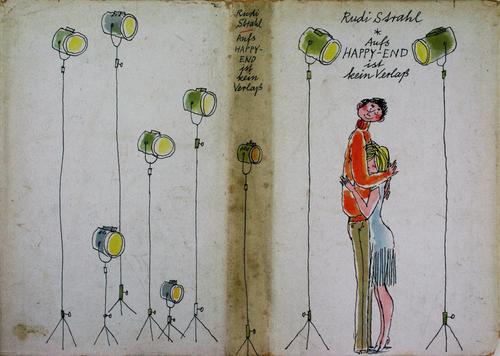 Rudi
Strahl
Aufs
HAPPY-
END
ist
kein
Verlaß
Rudi Strahl
*
Aufs
HAPPY-END
ist
kein Verlaß